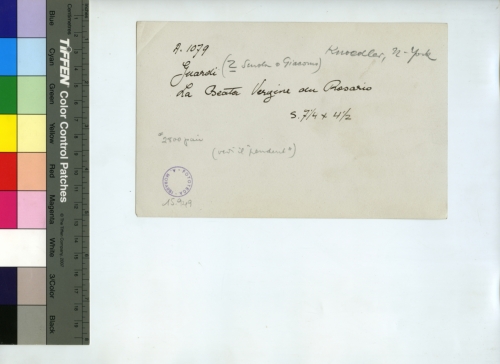 Blue
Cyan
Green
Yellow
Red
Magenta
White
3/Color
Black
TIFFEN Color Control Patches
© The Tiffen Company, 2007
A. 1079
Knoedler, N-York
Guardi (? Scuola o Giacomo)
La Beata Vergine del Rosario
S. 7¼ x 4½
(vedi il "pendent")
FOTOTECA